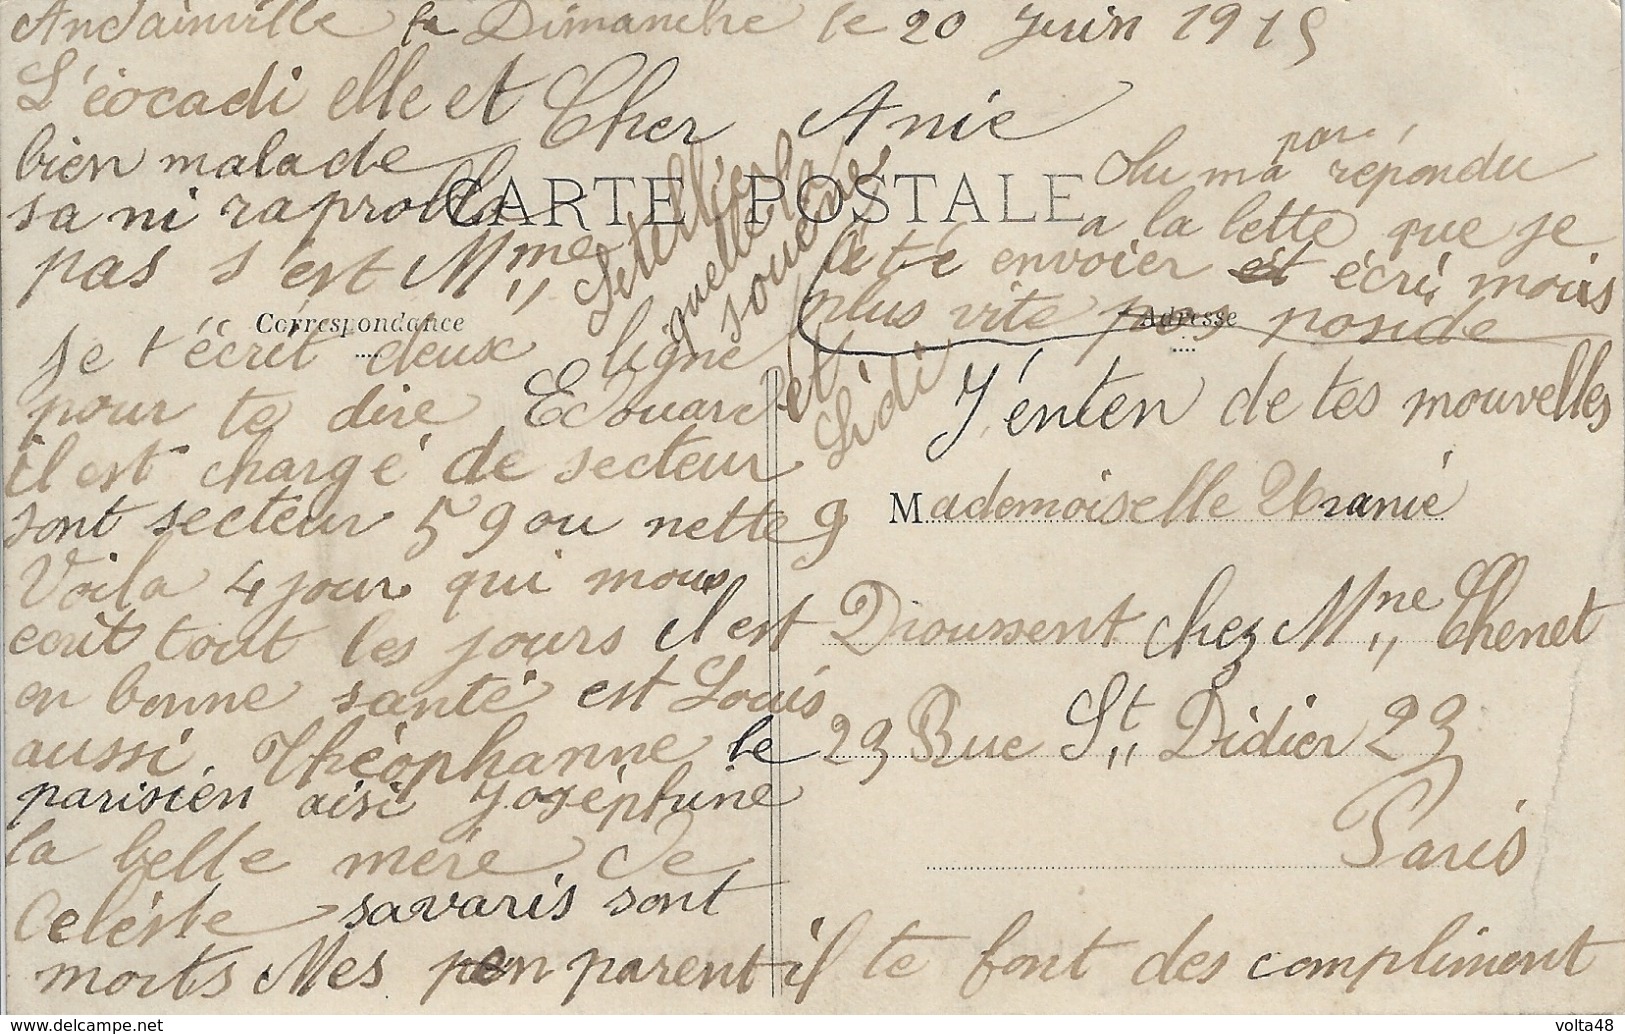 Andainville le Dimanche le 20 Juin 1915
L'éocadi elle et Cher Anie
bien malade
sa ni raproble
pas s'est Mme
CARTE POSTALE
Letellier
quelle la
souéné
et
Lidi
Correspondance
Je t'écrit deux ligne
pour te dire Edouard
il est chargé de secteur
sont secteur 59 ou nette 9
Voila 4 jour qui mous
ecrit tout les jours il est
en bonne santé est Louis
aussi Théophanne le
parisien aisi Joséphine
la belle mére de
Celéste savaris sont
morts Mes pen parent il te font des compliment
Olu m'a pas répondu
a la lette que je
été envoier et écri mois
plus vite pas poside
Adresse
J'énten de tes mouvelles
Mademoiselle Uranie
Droussent chez Mme Chenet
23 Rue St Didier 23
Paris
www.delcampe.net
volta48